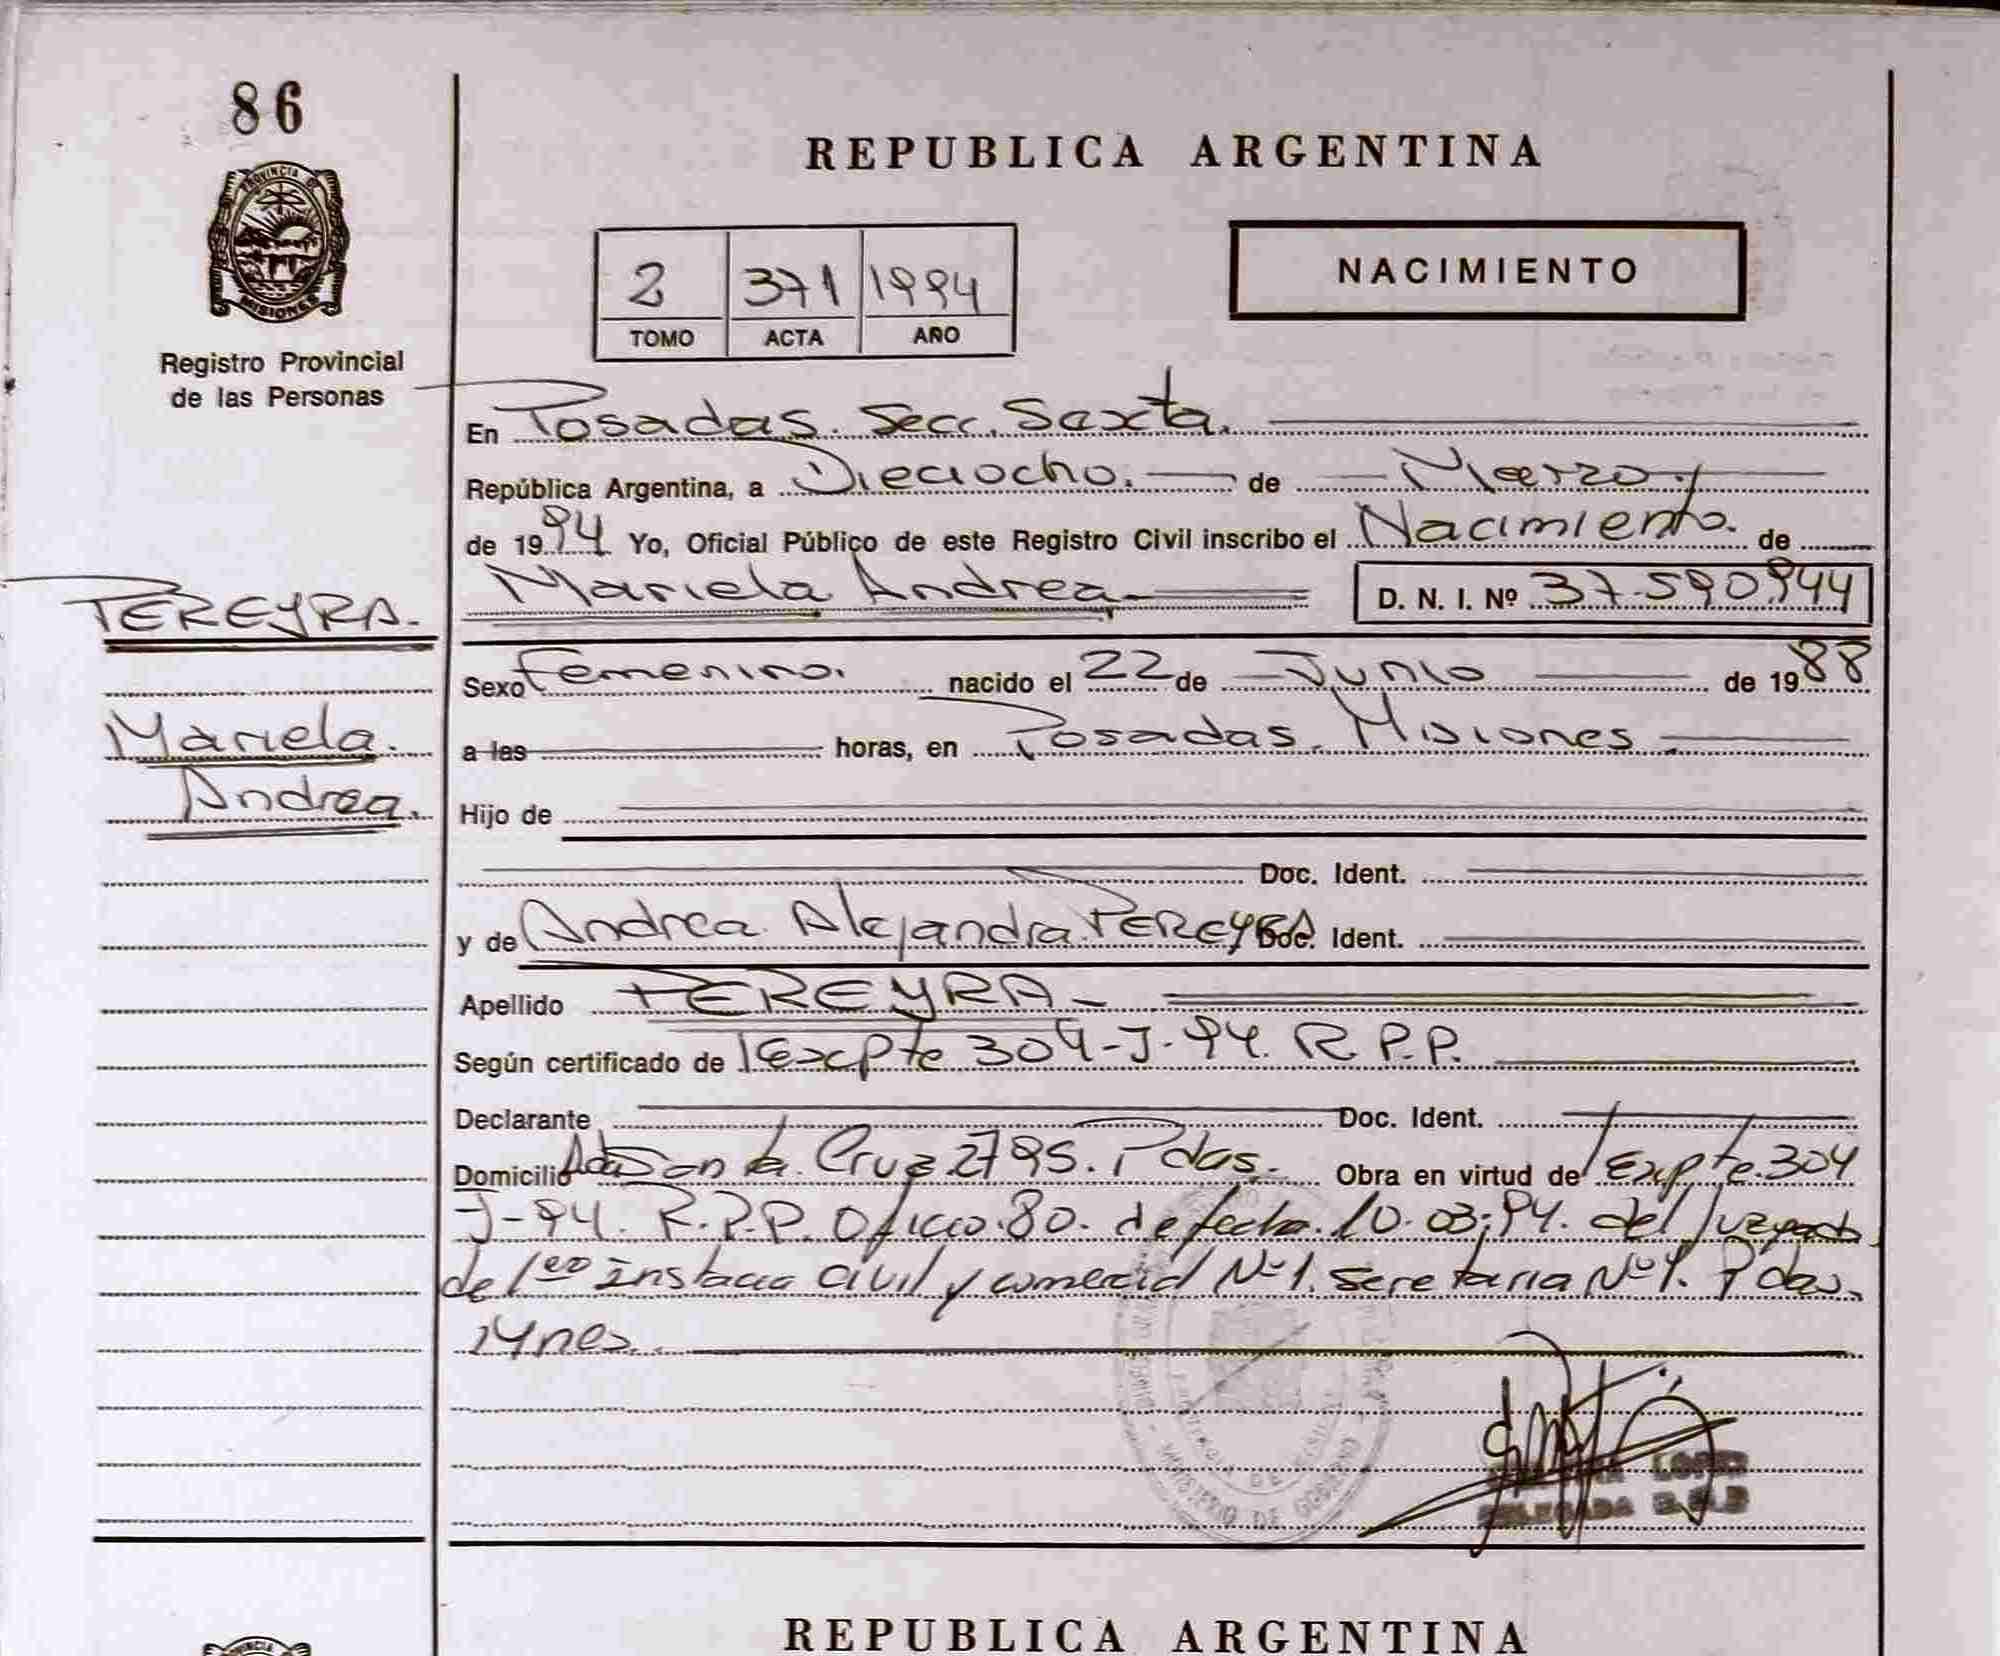 86
REPUBLICA ARGENTINA
PROVINCIA DE
MISIONES
2 371 1994
TOMO ACTA AÑO
NACIMIENTO
Registro Provincial
de las Personas
En Posadas. Secc. Sexta.
República Argentina, a Dieciocho. de Marzo
de 1994 Yo, Oficial Público de este Registro Civil inscribo el Nacimiento. de
Mariela Andrea D. N. I. Nº 37.590.944
PEREYRA.
Sexo Femenino. nacido el 22 de Junio de 1988
Mariela.
a las horas, en Posadas. Misiones
Andrea.
Hijo de
Doc. Ident.
y de Andrea Alejandra PEREYRA Doc. Ident.
Apellido PEREYRA
Según certificado de Expte 304-J-94. R.P.P.
Declarante Doc. Ident.
Domicilio Santa Cruz 2795. Pdas. Obra en virtud de Expte. 304
J-94. R.P.P. Oficio. 80. de fecha. 10.03.94. del Juzgado
de 1ero Instacia civil y comercial Nº1. Secretaria Nº1. Pdas.
Mnes.
MINISTERIO DE GOBIERNO
LOPEZ
DELEGADA
REPUBLICA ARGENTINA